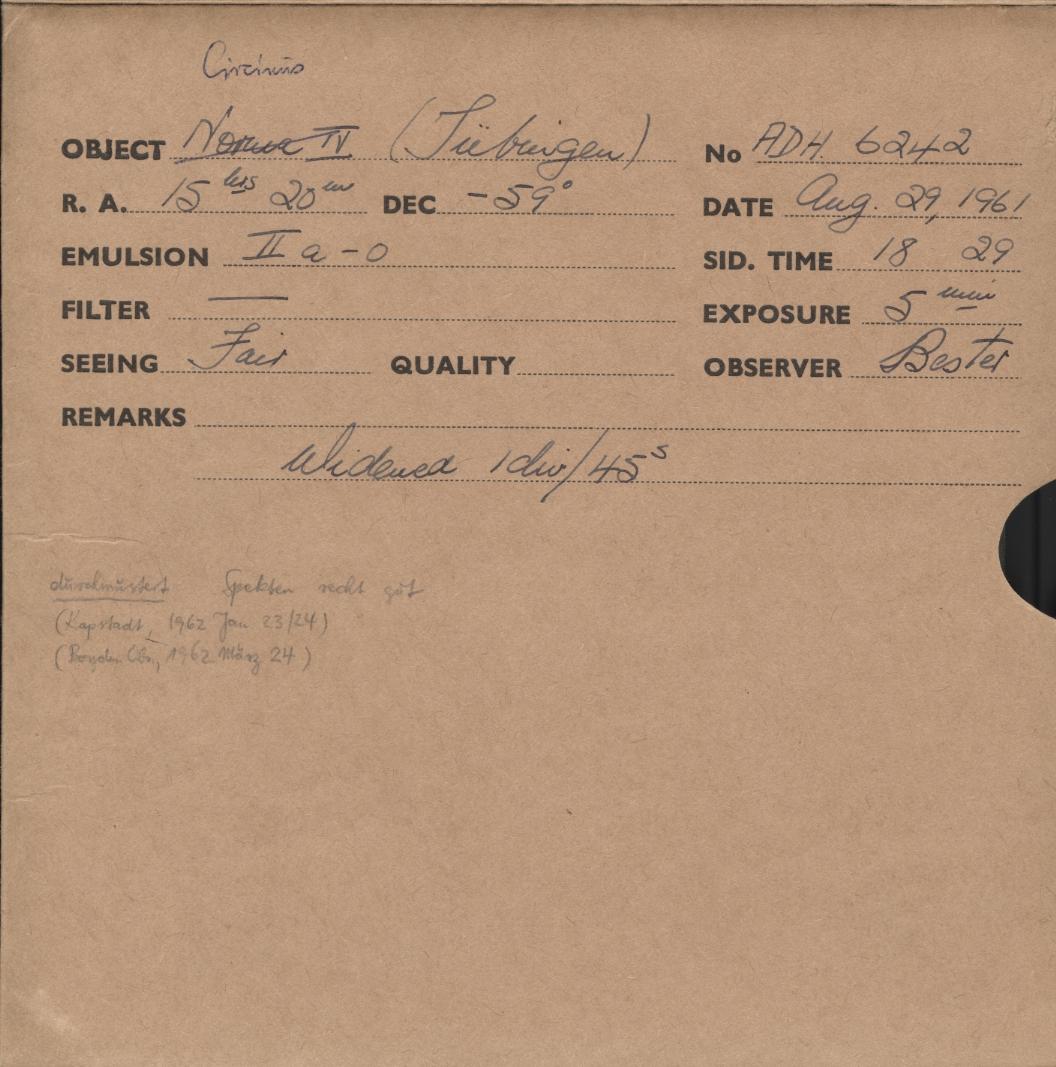 Circinus
OBJECT Norma IV (Tübingen) No ADH 6242
R. A. 15 hrs 20 m DEC -59° DATE Aug. 29, 1961
EMULSION II a - o SID. TIME 18 29
FILTER — EXPOSURE 5 min
SEEING Fair QUALITY OBSERVER Bester
REMARKS
Widened 1 div/45 s
durchmustert Spektren recht gut
(Kapstadt, 1962 Jan 23/24)
(Boyden Obs., 1962 März 24)